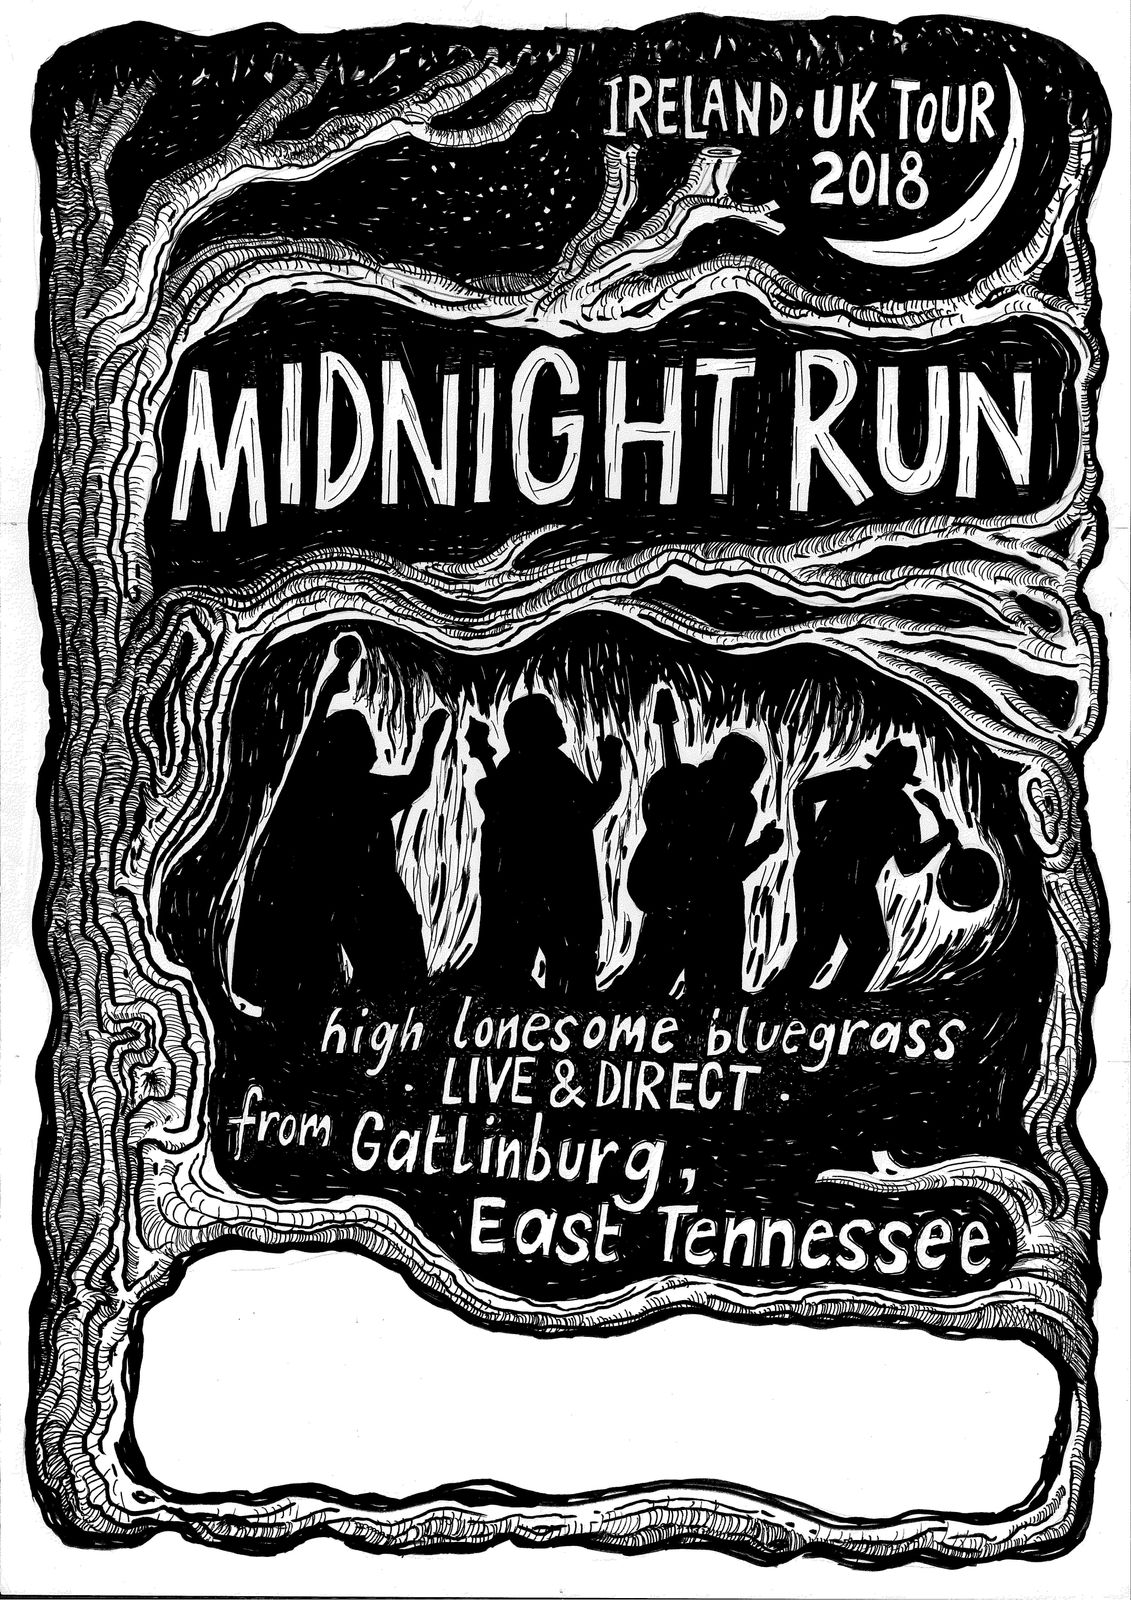 IRELAND · UK TOUR
2018
MIDNIGHT RUN
high lonesome bluegrass
· LIVE & DIRECT ·
from Gatlinburg,
East Tennessee